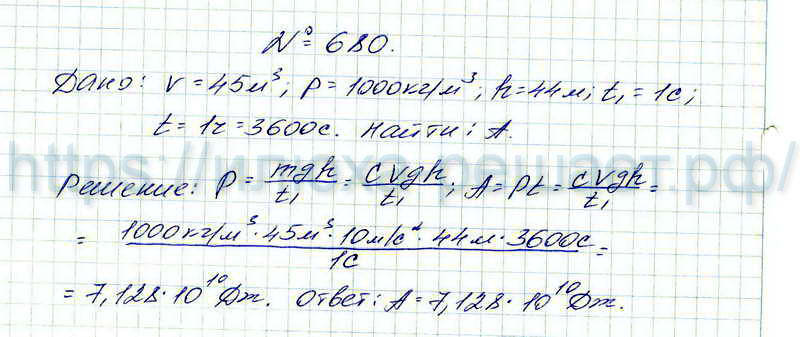 № 680.
Дано: V = 45м³; ρ = 1000кг/м³; h = 44м; t₁ = 1с;
t = 1ч = 3600с. Найти: A.
Решение: P = mgh/t₁ = cVgh/t₁; A = Pt = cVgh/t₁ =
= 1000кг/м³ · 45м³ · 10м/с² · 44м · 3600с/1с =
= 7,128 · 10¹⁰ Дж. Ответ: A = 7,128 · 10¹⁰ Дж.